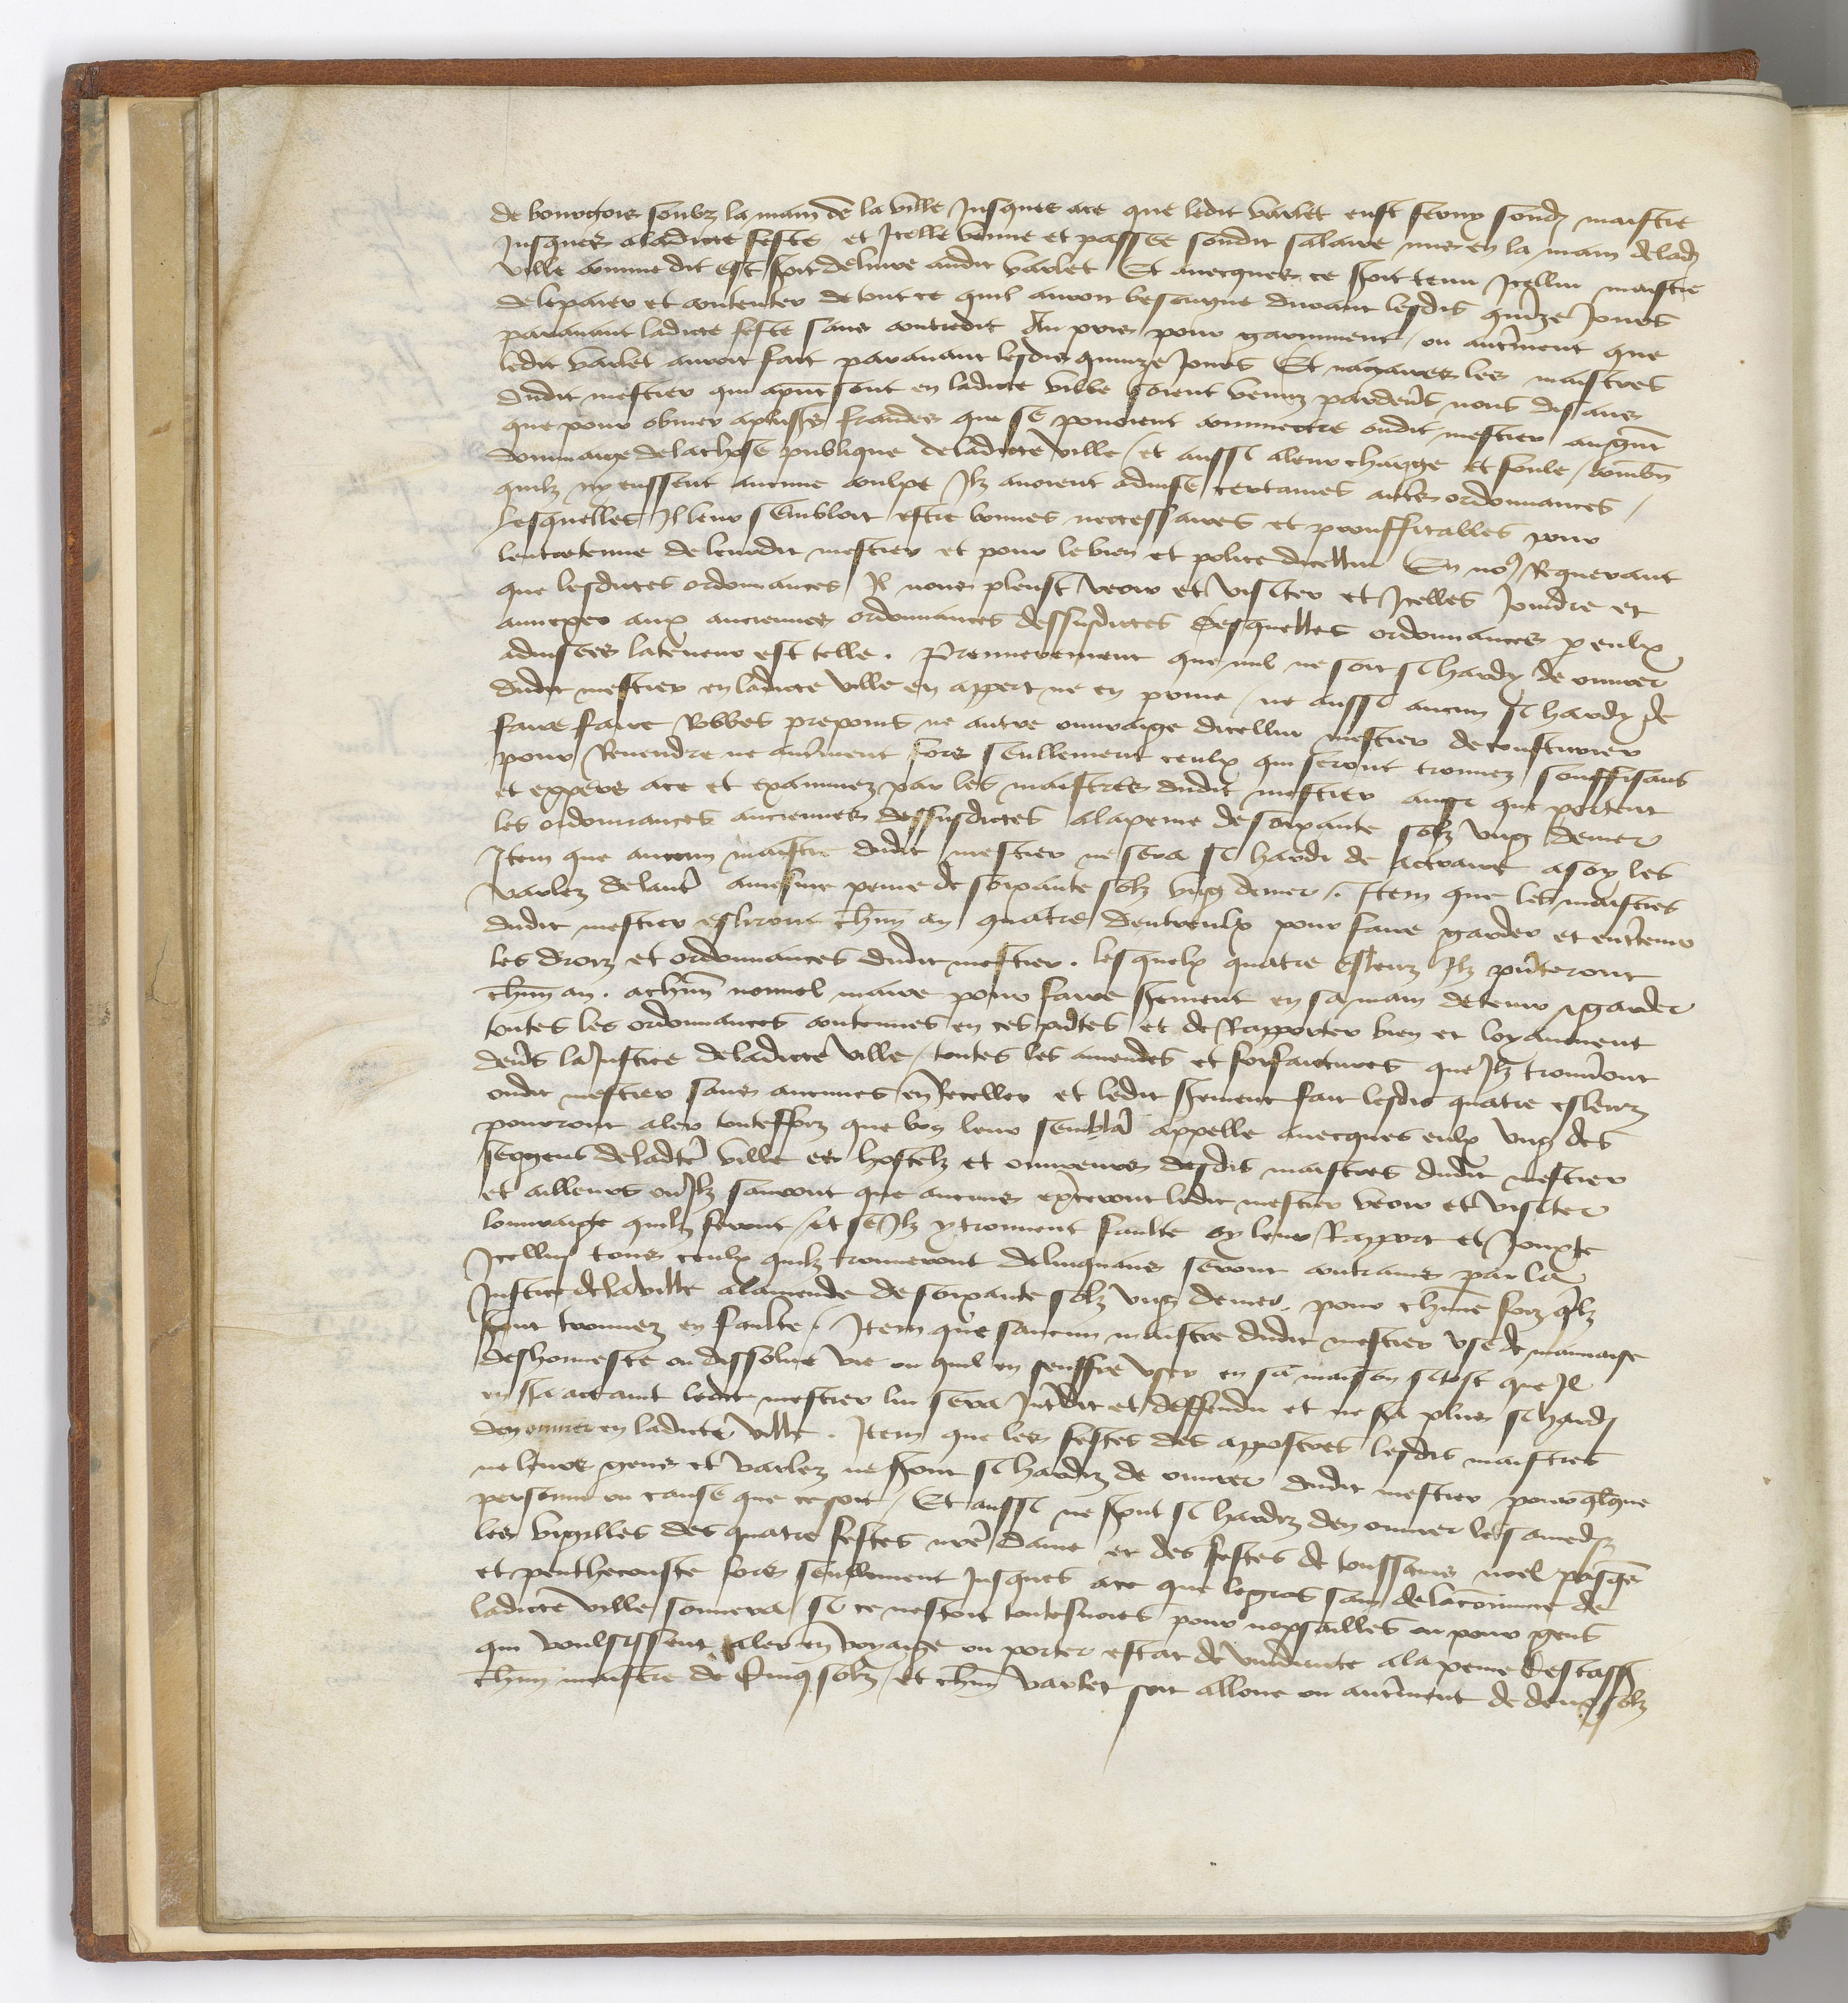 de bourgois soubz la main de la ville Jusques ace que ledit varlet eust servy sond maistre
Jusques aladicte feste et Icelle venue et passee soudit salaire mis en la main delad
ville comme dit est soit delivre audit varlet Et avecques ce soit tenu Icellui maistre
de lepaier et contenter detout ce quil auroit besoingne durant lesdis quinze Jours
paravant ladicte feste sans contredit Au pris pour garnement ou autment que
ledit varlet auroit fait paravant lesdis quinze Jours Et nagaires les maistres
dudit mestier qui apnt sont en ladicte ville soient venuz pardevs nous disans
que pour obvier aplusrs fraudes que se povoient commectre oudit mestier augnt
dommaige delachose publique deladicte ville / et aussi aleur charge et foule / combn
quilz ny eussent aucune coulpe Ilz avoient advise certaines autrs ordonnances /
lesquelles Il leur sembloit estre bonnes necessaires et prouffitables pour
lentretenue de leurdit mestier et pour lebien et police dicellui En nos Requerant
que lesdictes ordonnances Il nous pleust veoir et visiter et Icelles Joindre et
annexer aux anciennes ordonnances dessusdictes Desquelles ordonnances p eulx
advisees lateneur est telle . Premierement que nul ne soit si hardy de ouvrer
dudit mestier en ladicte ville en appert ne en prive / ne aussi aucun si hardy de
faire faire Robbes prepoins ne autre ouvraige dicellui mestier decousturier
pour Revendre ne autment fors seullement ceulx qui seront trouvez souffisans
et expers ace et examinez par les maistres dudit mestier ainsi que portent
les ordonnances anciennes dessusdictes alapeine desoixante solz ung denier
Item que aucun maistre dudit mestier ne sera si hardi de actraire asoy les
varlez delautre amesme peine de soixante solz ung denier . Item que les maistres
dudit mestier esliront chun an quatre dentreulx pour faire garder et entrtenir
les droiz et ordonnances dudit mestier . lesquelx quatre esleuz Ilz pnteront
chun an . achun nouvel maire pour faire sement en sa main detenir garder
toutes les ordonnances contenues en ces pntes et de Rapporter bien et loyaument
devs la Justice deladicte ville / toutes les amendes et forfaictures que Ilz trouvont
oudit mestier sans aucunes en Receller et ledit sement fait lesdis quatre esleuz
pourront aler toutesfoiz que bon leur semblra appelle avecques eulx ung des
sergens deladte ville es hostelz et ouvreurs desdis maistres dudit mestier
et ailleurs ou Ilz sauront que aucuns exceront ledit mestier veoir et visiter
louvraige quilz feront / Et se Ilz ytrouvent faulte oy leur Rapport et Jouxte
Icellui tous ceulx quilz trouveront delinquans seront contrains par la
Justice delaville alamende de soixante solz ung denier . pour chune foiz qlz
sont trouvez en faulte / Item que saucun maistre dudit mestier use de mauvaise
deshonneste ou dissolue vie ou quil en seuffre user en sa maison sitost que Il
en sa actaint ledit mestier lui sera Intrdit et deffendu et ne sa plus si hardy
den ouvrer en ladicte ville . Item que les festes des appostres lesdis maistres
ne leurs gens et varlez ne sont si hardiz de ouvrer dudit mestier pour qlque
personne ou cause que cesoit / Et aussi ne sont si hardiz den ouvrer lesamedi
les vigilles des quatre festes nre Dame et des festes de toussains noel pasqs
et penthecouste fors seullement Jusques ace que legros sain delacommune de
ladicte ville sonnera si ce nestoit toutesvoies pour nopsailles ou pour gens
qui voulsissent aler en voyaige ou porter estat de viduite alapeine destass
chun maistre de Cinq solz / et chun varlet soit alloue ou autrment de deux solz